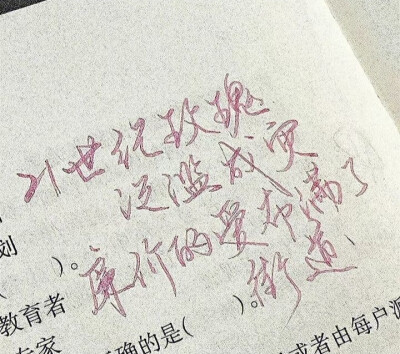 21世纪玫瑰
泛滥成灾
廉价的爱布满了
街道
划
(　　)。
教育者
专家
确的是(　　)。
或者由每户派